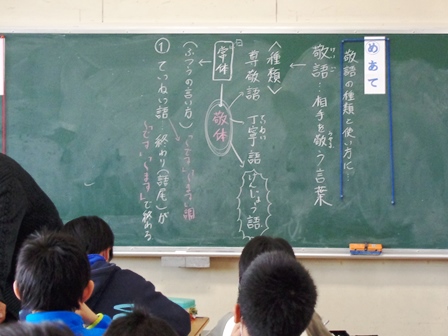 めあて
敬語の種類と使い方に…
けいご
敬語…相手を敬う言葉
うやま
〈種類〉
尊敬語
ていねい
丁寧語
けんじょう語
敬体
常体
(ふつうの言い方)
「です」「ます」調
① ていねい語 終わり(語尾)が
「です」「ます」で終わる